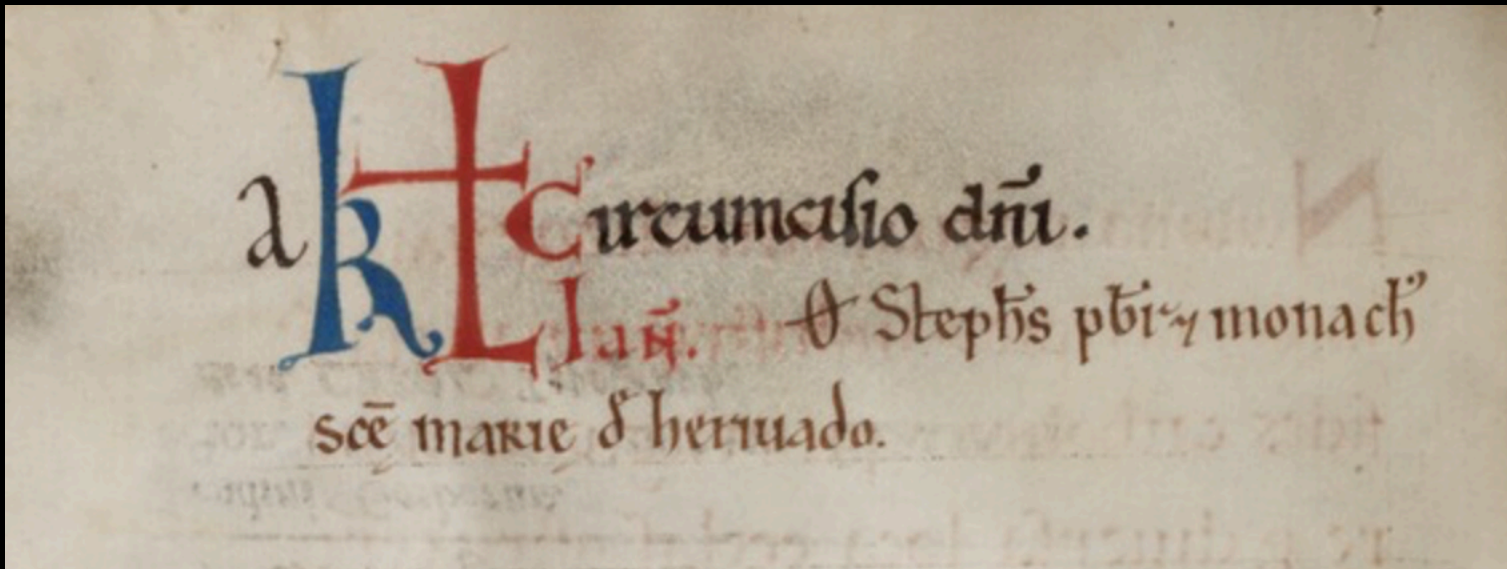 a KL Circumcisio dn̄i.
Ian̄. Ꝋ Steph̄s pb̄r ⁊ monach̄
scē marię d̄ herıuado.